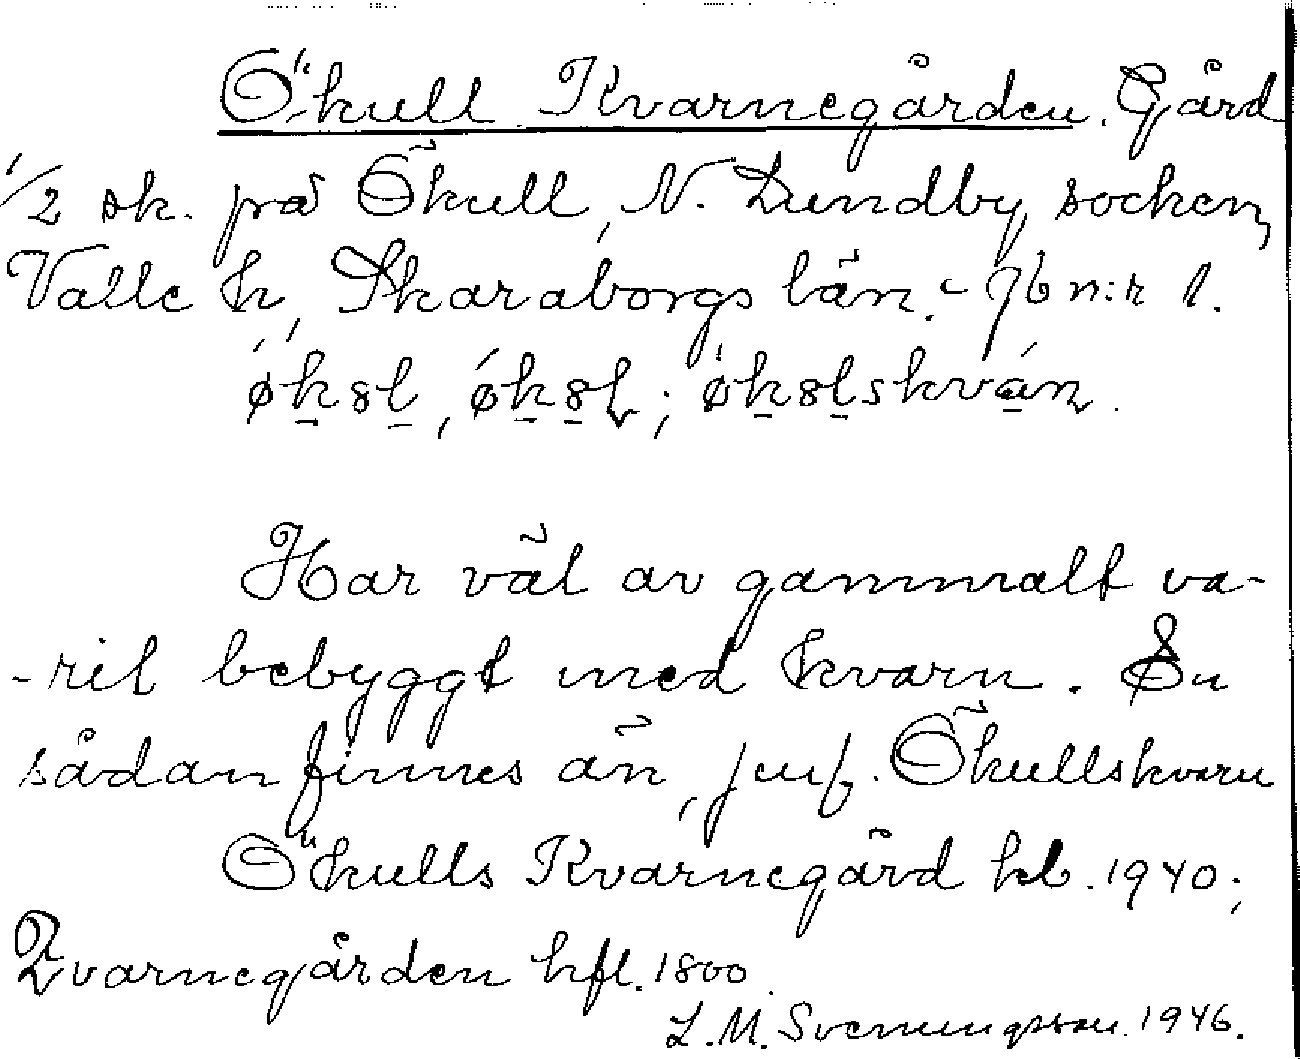 Ökull Kvarnegården. Gård
1/2 sk. på Ökull, N. Lundby socken,
Valle h, Skaraborgs län. - Jb n:r 1.

Har väl av gammalt va-
-rit bebyggt med kvarn. En
sådan finnes än, jmf. Ökullskvarn
Ökulls Kvarnegård hl. 1940;
Kvarnegården hfl. 1800.
L. M. Svenungsson. 1946.